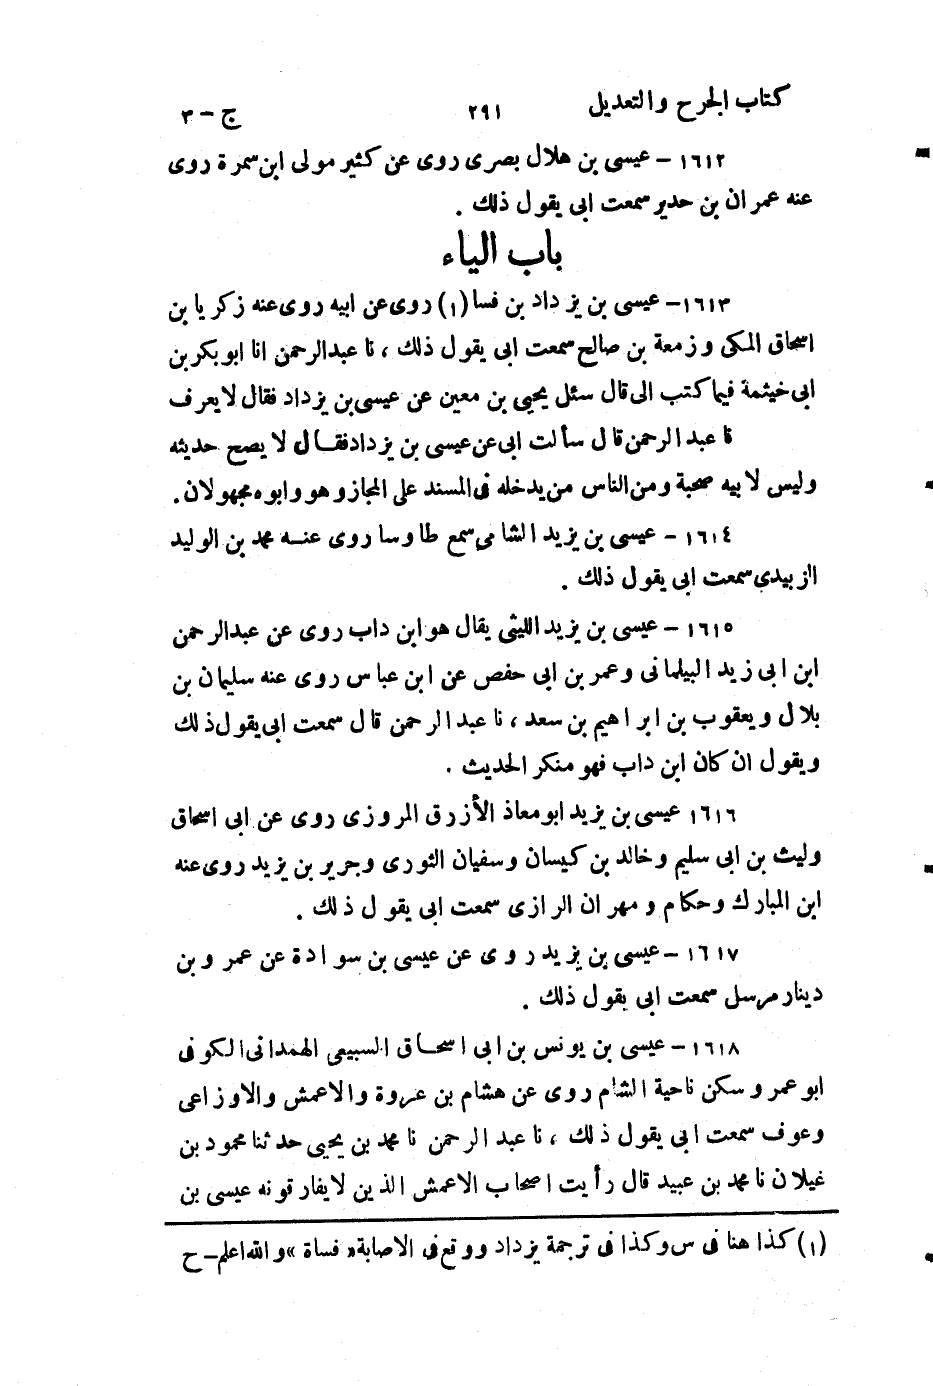 كتاب الجرح والتعديل ٢٩١ ج – ٣
١٦١٢ – عيسى بن هلال بصرى روى عن كثير مولى ابن سمرة روى
عنه عمران بن حدير سمعت ابى يقول ذلك .
باب الياء
١٦١٣– عيسى بن يزداد بن فسا (١) روى عن ابيه روى عنه زكريا بن
اسحاق المكى وزمعة بن صالح سمعت ابى يقول ذلك ، نا عبدالرحمن انا ابو بكر بن
ابى خيثمة فيما كتب الى قال سئل يحيى بن معين عن عيسى بن يزداد فقال لا يعرف
نا عبد الرحمن قال سألت ابى عن عيسى بن يزداد فقال لا يصح حديثه
وليس لابيه صحبة ومن الناس من يدخله فى المسند على المجاز وهو وابوه مجهولان.
١٦١٤ – عيسى بن يزيد الشامى سمع طاوسا روى عنه محمد بن الوليد
الزبيدى سمعت ابى يقول ذلك .
١٦١٥ – عيسى بن يزيد الليثى يقال هو ابن داب روى عن عبدالرحمن
ابن ابى زيد البيلمانى وعمر بن ابى حفص عن ابن عباس روى عنه سليمان بن
بلال ويعقوب بن ابراهيم بن سعد ، نا عبد الرحمن قال سمعت ابى يقول ذلك
ويقول ان كان ابن داب فهو منكر الحديث .
١٦١٦ عيسى بن يزيد ابو معاذ الأزرق المروزى روى عن ابى اسحاق
وليث بن ابى سليم وخالد بن كيسان وسفيان الثورى وجرير بن يزيد روى عنه
ابن المبارك وحكام ومهران الرازى سمعت ابى يقول ذلك .
١٦١٧ – عيسى بن يزيد روى عن عيسى بن سوادة عن عمرو بن
دينار مرسل سمعت ابى يقول ذلك .
١٦١٨ – عيسى بن يونس بن ابى اسحاق السبيعى الهمدانى الكوفى
ابو عمرو سكن ناحية الشام روى عن هشام بن عروة والاعمش والاوزاعى
وعوف سمعت ابى يقول ذلك ، نا عبد الرحمن نا محمد بن يحيى حدثنا محمود بن
غيلان نا محمد بن عبيد قال رأيت اصحاب الاعمش الذين لايفارقونه عيسى بن
(١) كذا هنا فى س وكذا فى ترجمة يزداد ووقع فى الاصابة « فساة » والله اعلم – ح